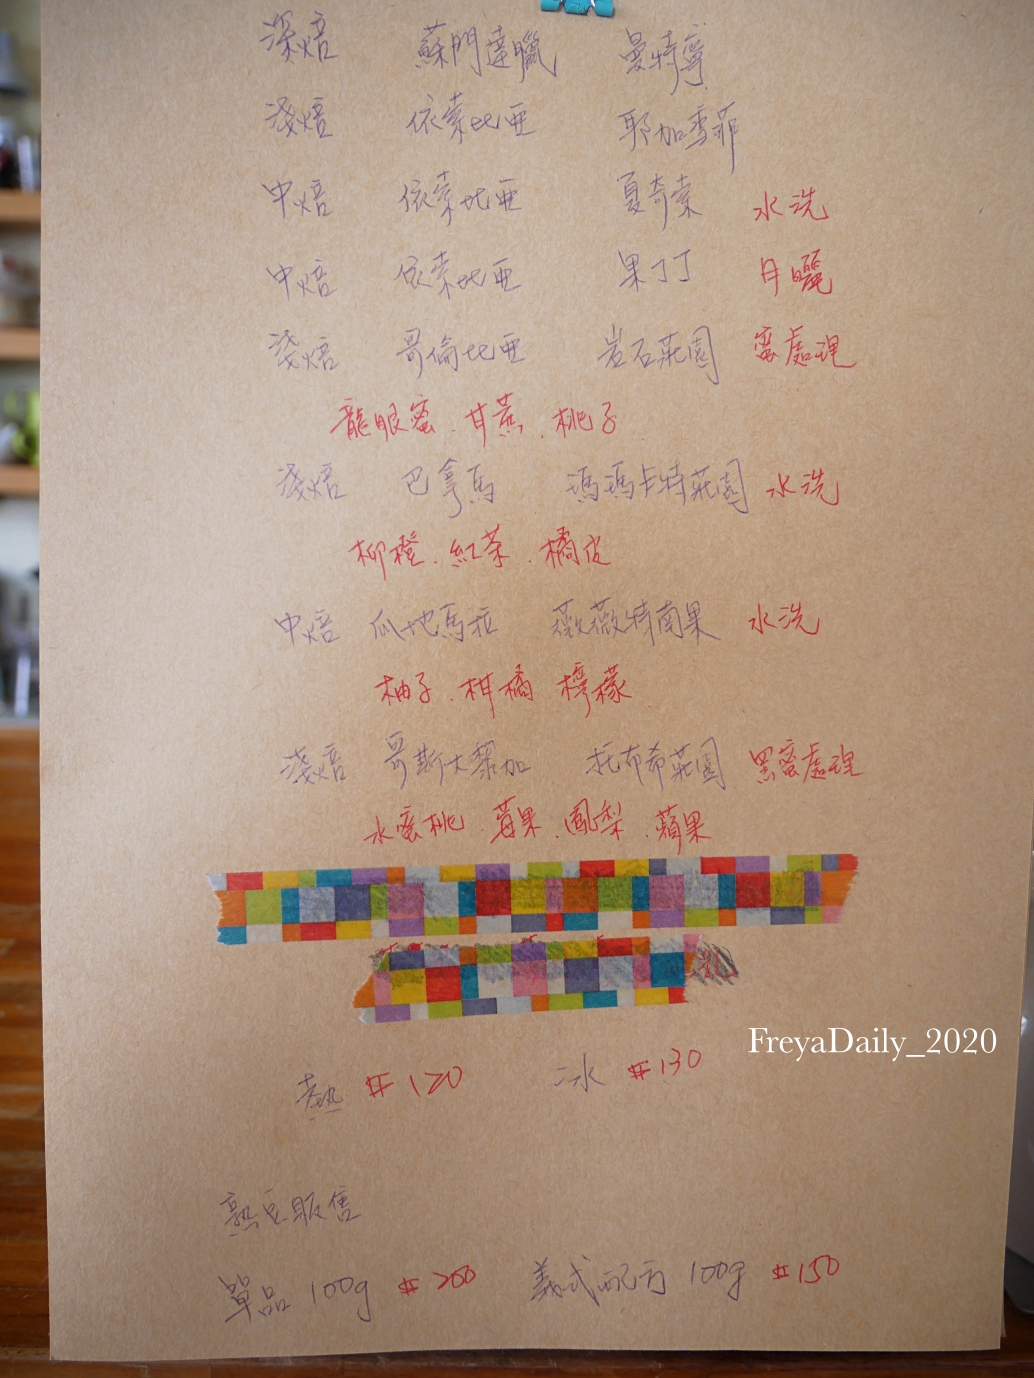 深焙 蘇門達臘 曼特寧
淺焙 依索比亞 耶加雪菲
中焙 依索比亞 夏奇索 水洗
中焙 依索比亞 果丁丁 日曬
淺焙 哥倫比亞 岩石莊園 蜜處理
龍眼蜜.甘蔗.桃子
淺焙 巴拿馬 瑪瑪卡特莊園 水洗
柳橙.紅茶.橘皮
中焙 瓜地馬拉 薇薇特南果 水洗
柚子.柑橘 檸檬
淺焙 哥斯大黎加 托布希莊園 黑蜜處理
水蜜桃.莓果.鳳梨.蘋果
FreyaDaily_2020
熱 #120 冰 #130
熟豆販售
單品 100g #200 義式配方 100g #150